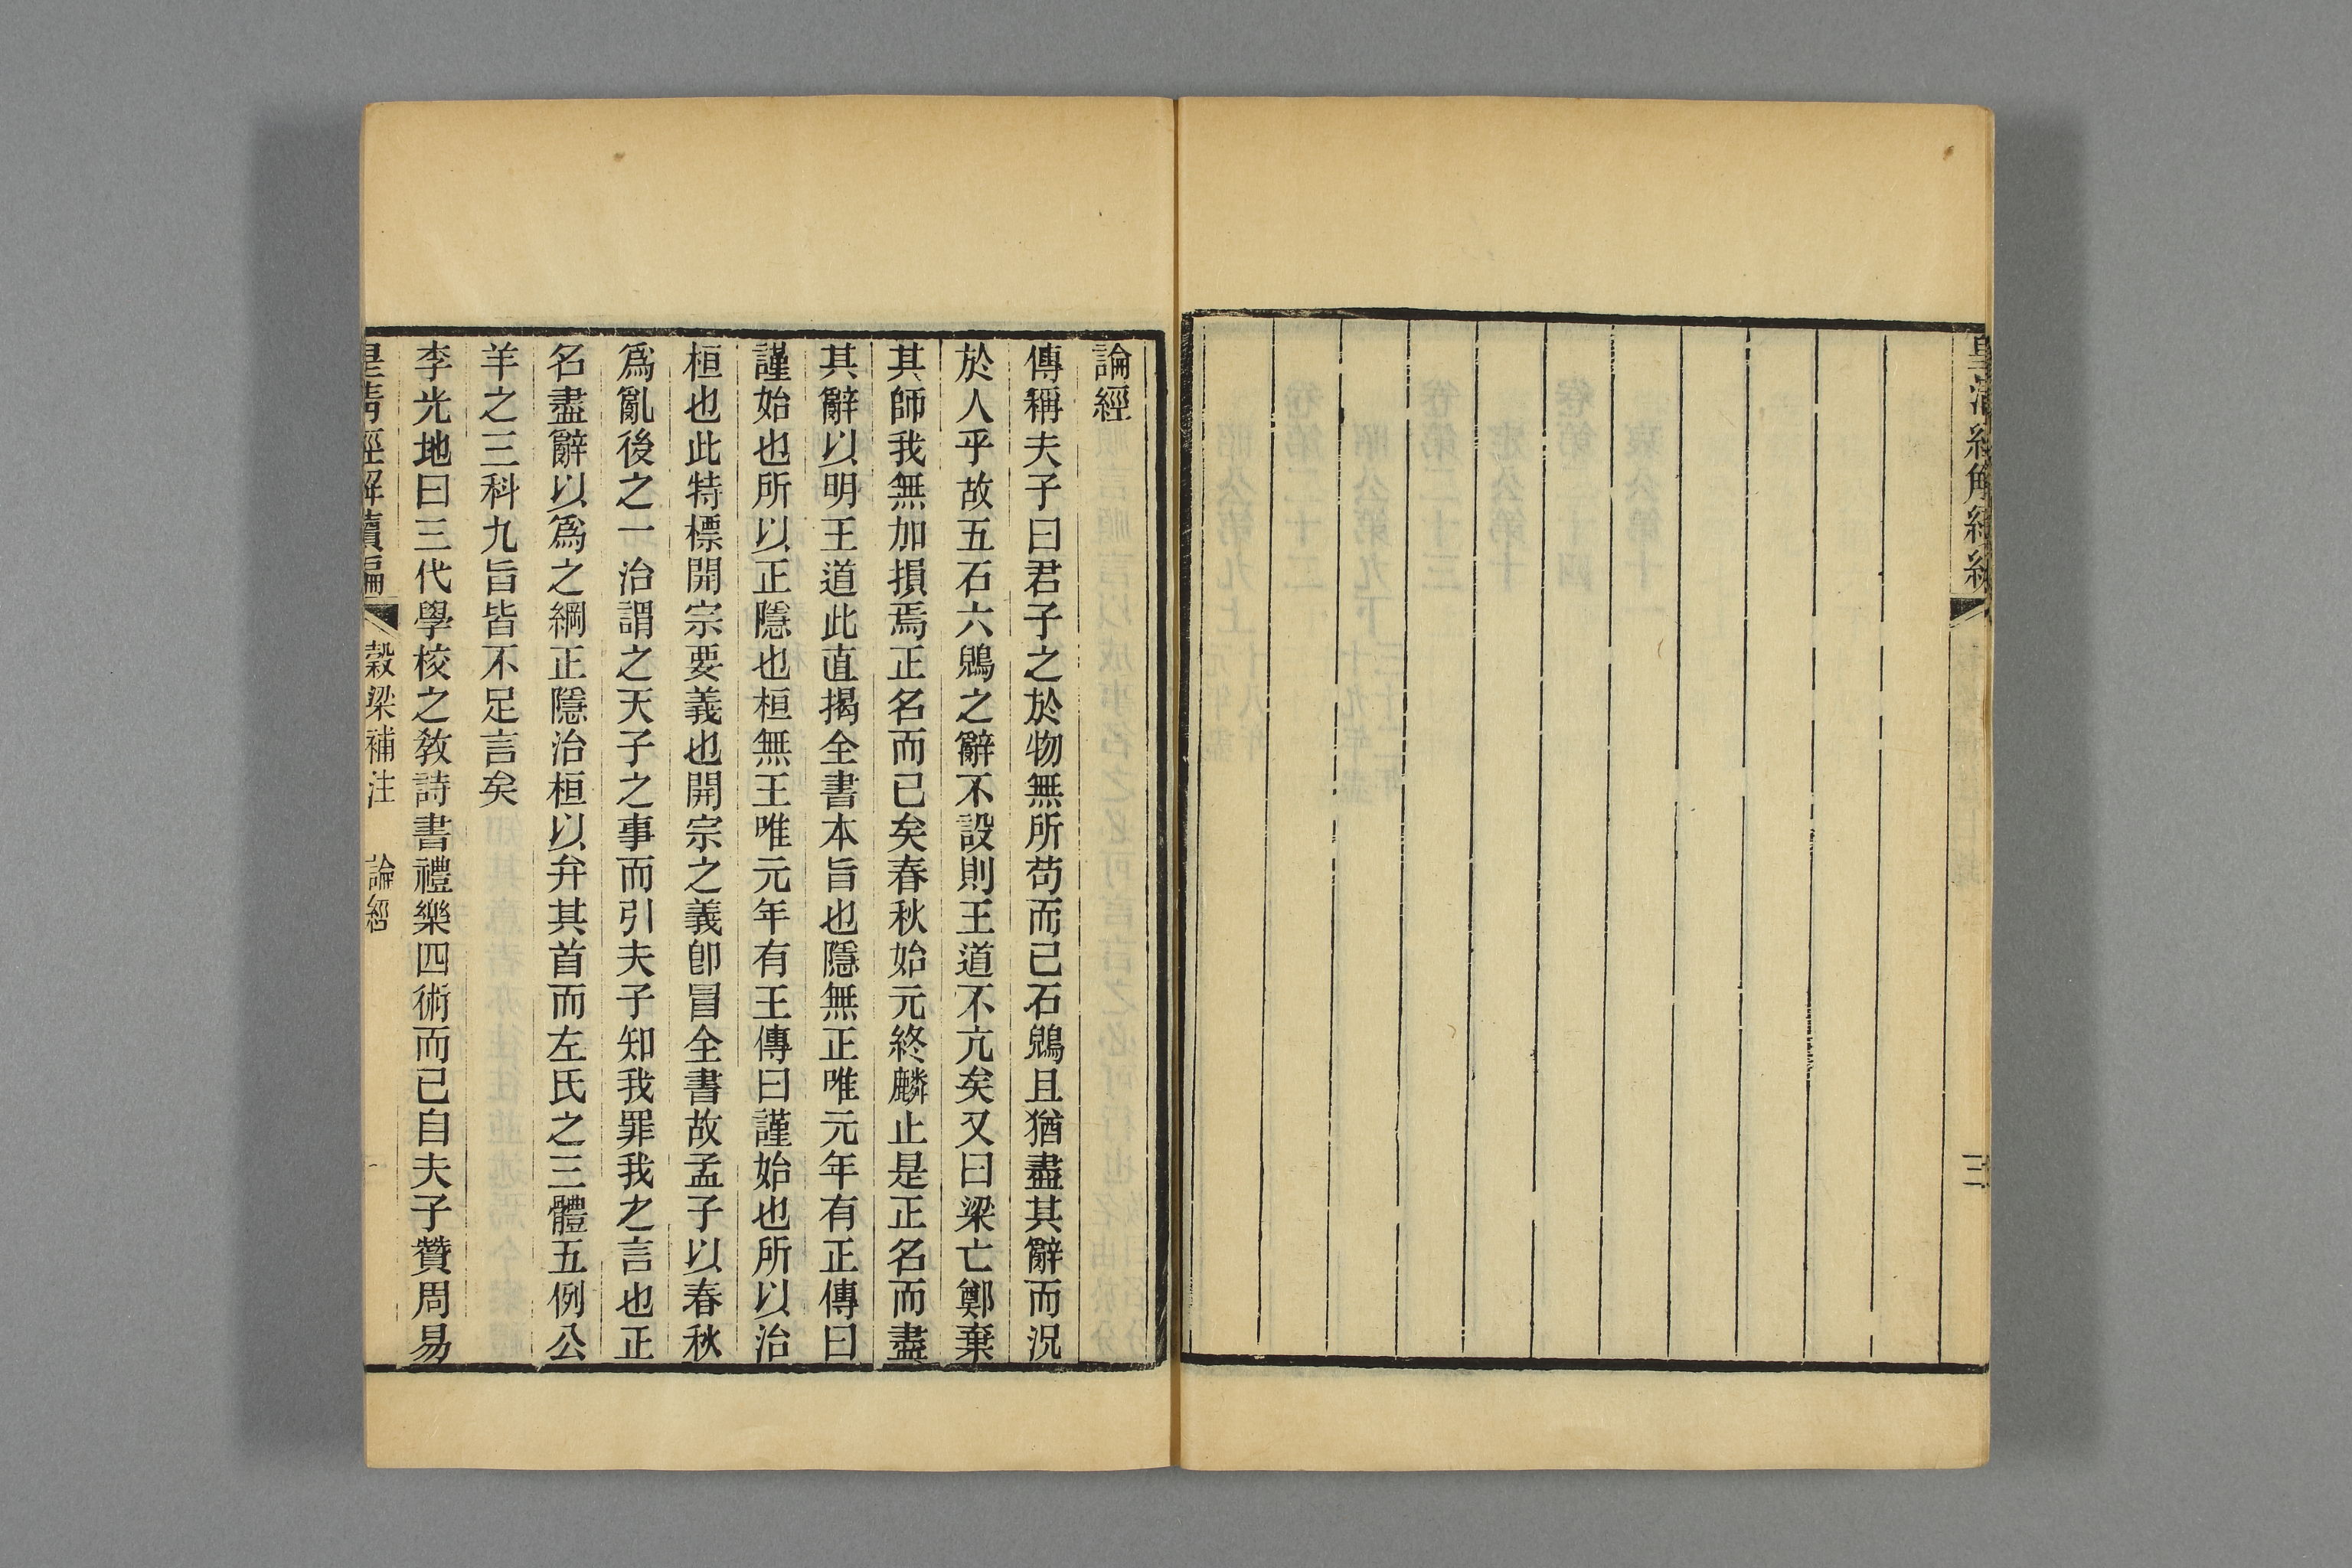 皇清經解續編
三
論經
傳稱夫子曰君子之於物無所苟而已石鶂且猶盡其辭而況
於人乎故五石六鶂之辭不設則王道不亢矣又曰梁亡鄭棄
其師我無加損焉正名而已矣春秋始元終麟止是正名而盡
其辭以明王道此直揭全書本旨也隱無正唯元年有正傳曰
謹始也所以正隱也桓無王唯元年有王傳曰謹始也所以治
桓也此特標開宗要義也開宗之義卽冒全書故孟子以春秋
爲亂後之一治謂之天子之事而引夫子知我罪我之言也正
名盡辭以爲之綱正隱治桓以弁其首而左氏之三體五例公
羊之三科九旨皆不足言矣
李光地曰三代學校之敎詩書禮樂四術而已自夫子贊周易
皇清經解續編 穀梁補注 論經 一